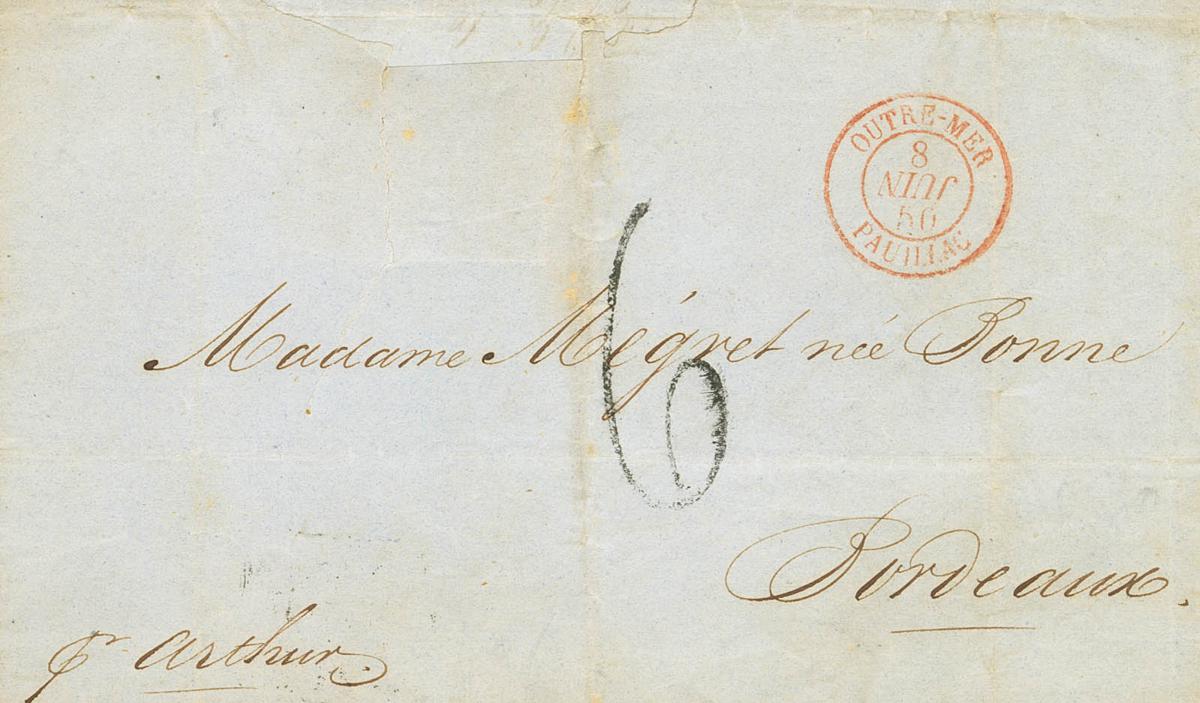 OUTRE-MER
8
JUIN
50
PAUILLAC
6
Madame Mégret née Bonne
Bordeaux.
pr arthur.